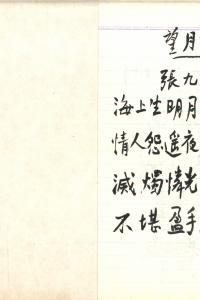 望月
張九
海上生明月
情人怨遥夜
滅燭憐光
不堪盈手